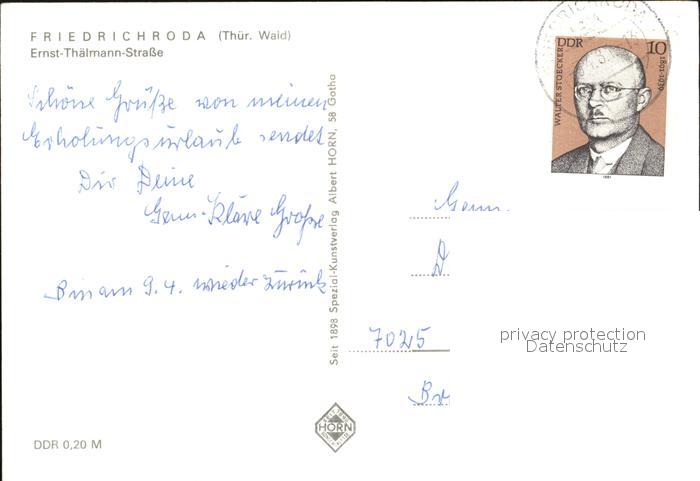 FRIEDRICHRODA (Thür. Wald)
Ernst-Thälmann-Straße
Schöne Grüße von meinem
Erholungsurlaub sendet
Dir Deine
Genn. Kläre Große
Bin am 9.4. wieder zurück
Seit 1898 Spezial-Kunstverlag Albert HORN, 58 Gotha
FRIEDRICHRODA
DDR 10
WALTER STOECKER
1891-1939
1981
Genn.
D
7025
privacy protection
Datenschutz
Br
HORN
DDR 0,20 M